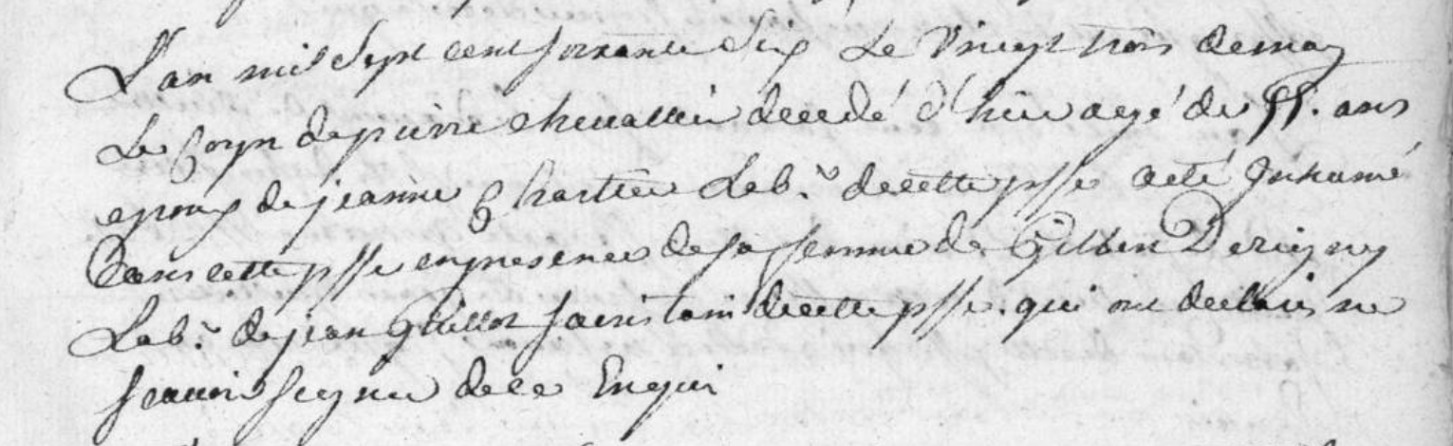 L'an mil sept cent soixante dix Le Vingt trois de may
Le Corps de pierre chevallier decedé d'hier agé de 55. ans
epoux de jeanne Chartier Lab.r de cette psse a eté Jnhumé
Dans cette psse en presence de sa femme de Gilbert Derigny
Lab.r de jean Guillot sacristain de cette psse. qui ont declaré ne
scavoir signer de ce Enquis